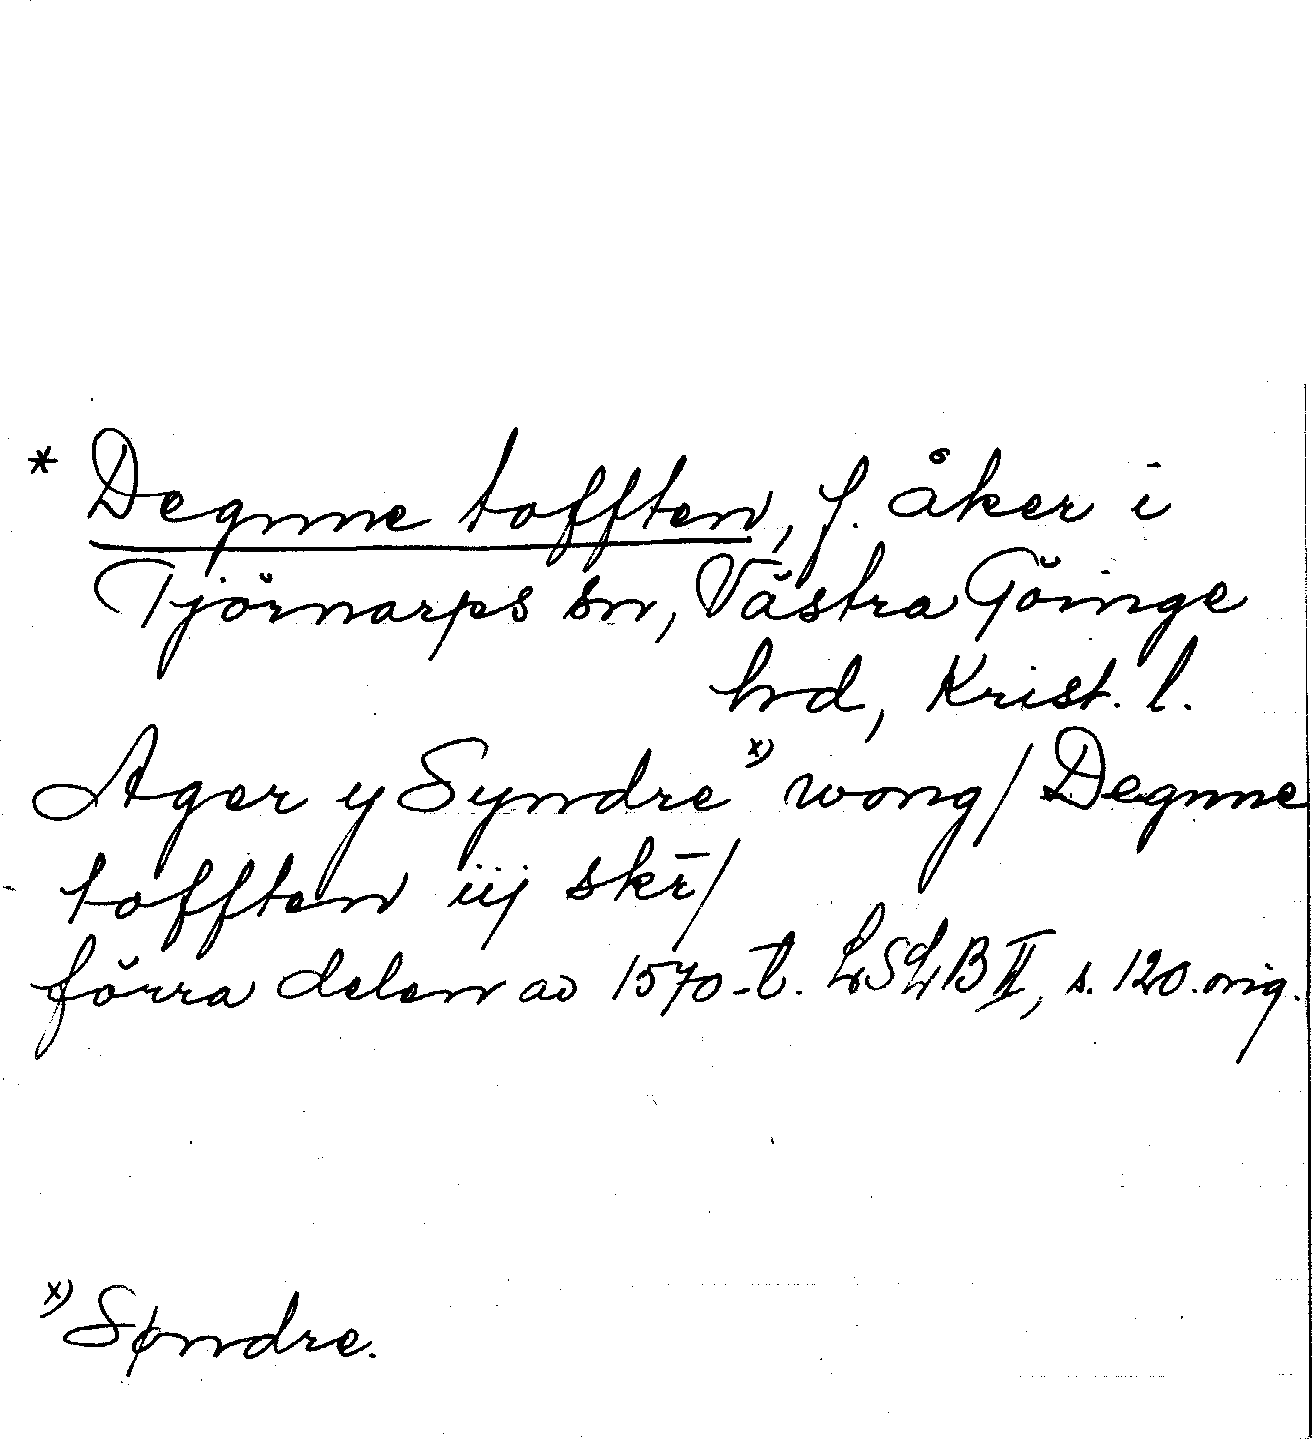 * Degnne tofften, f. åker i
Tjörnarps sn, Västra Göinge
hd, Krist. l.
Ager y Syndre x) wong/ Degnne
tofften iij skr̄/
förra delen av 1570-t. LSLB II, s. 120. orig.
x) Søndre.